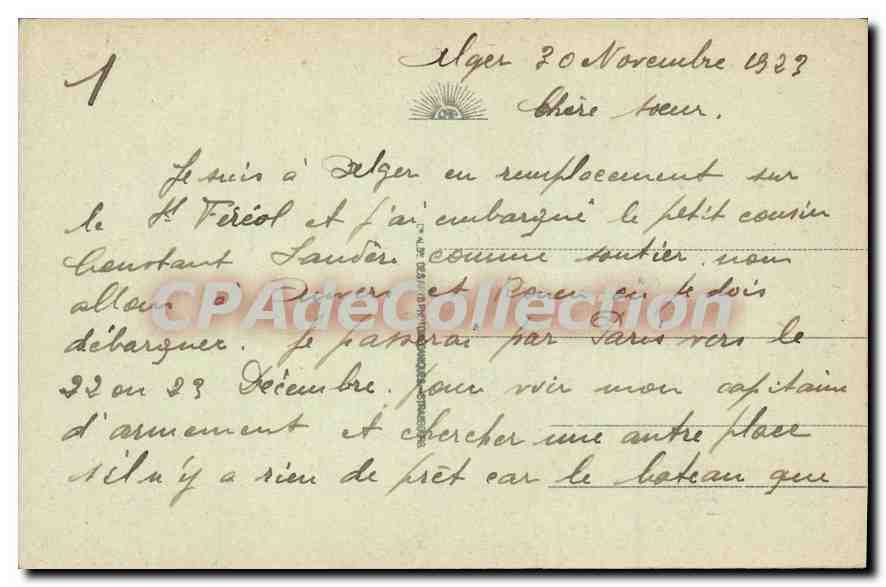 1
Alger 30 Novembre 1923
Chère sœur.
Je suis à Alger en remplacement sur
le St Féréol et j'ai embarqué le petit cousin
Constant comme soutier. nous
allons à Anvers et Rouen où je dois
débarquer. Je passerai par Paris vers le
22 ou 23 Décembre. pour voir mon capitaine
d'armement et chercher une autre place
s'il n'y a rien de prêt car le bateau que
CPAdeCollection.com